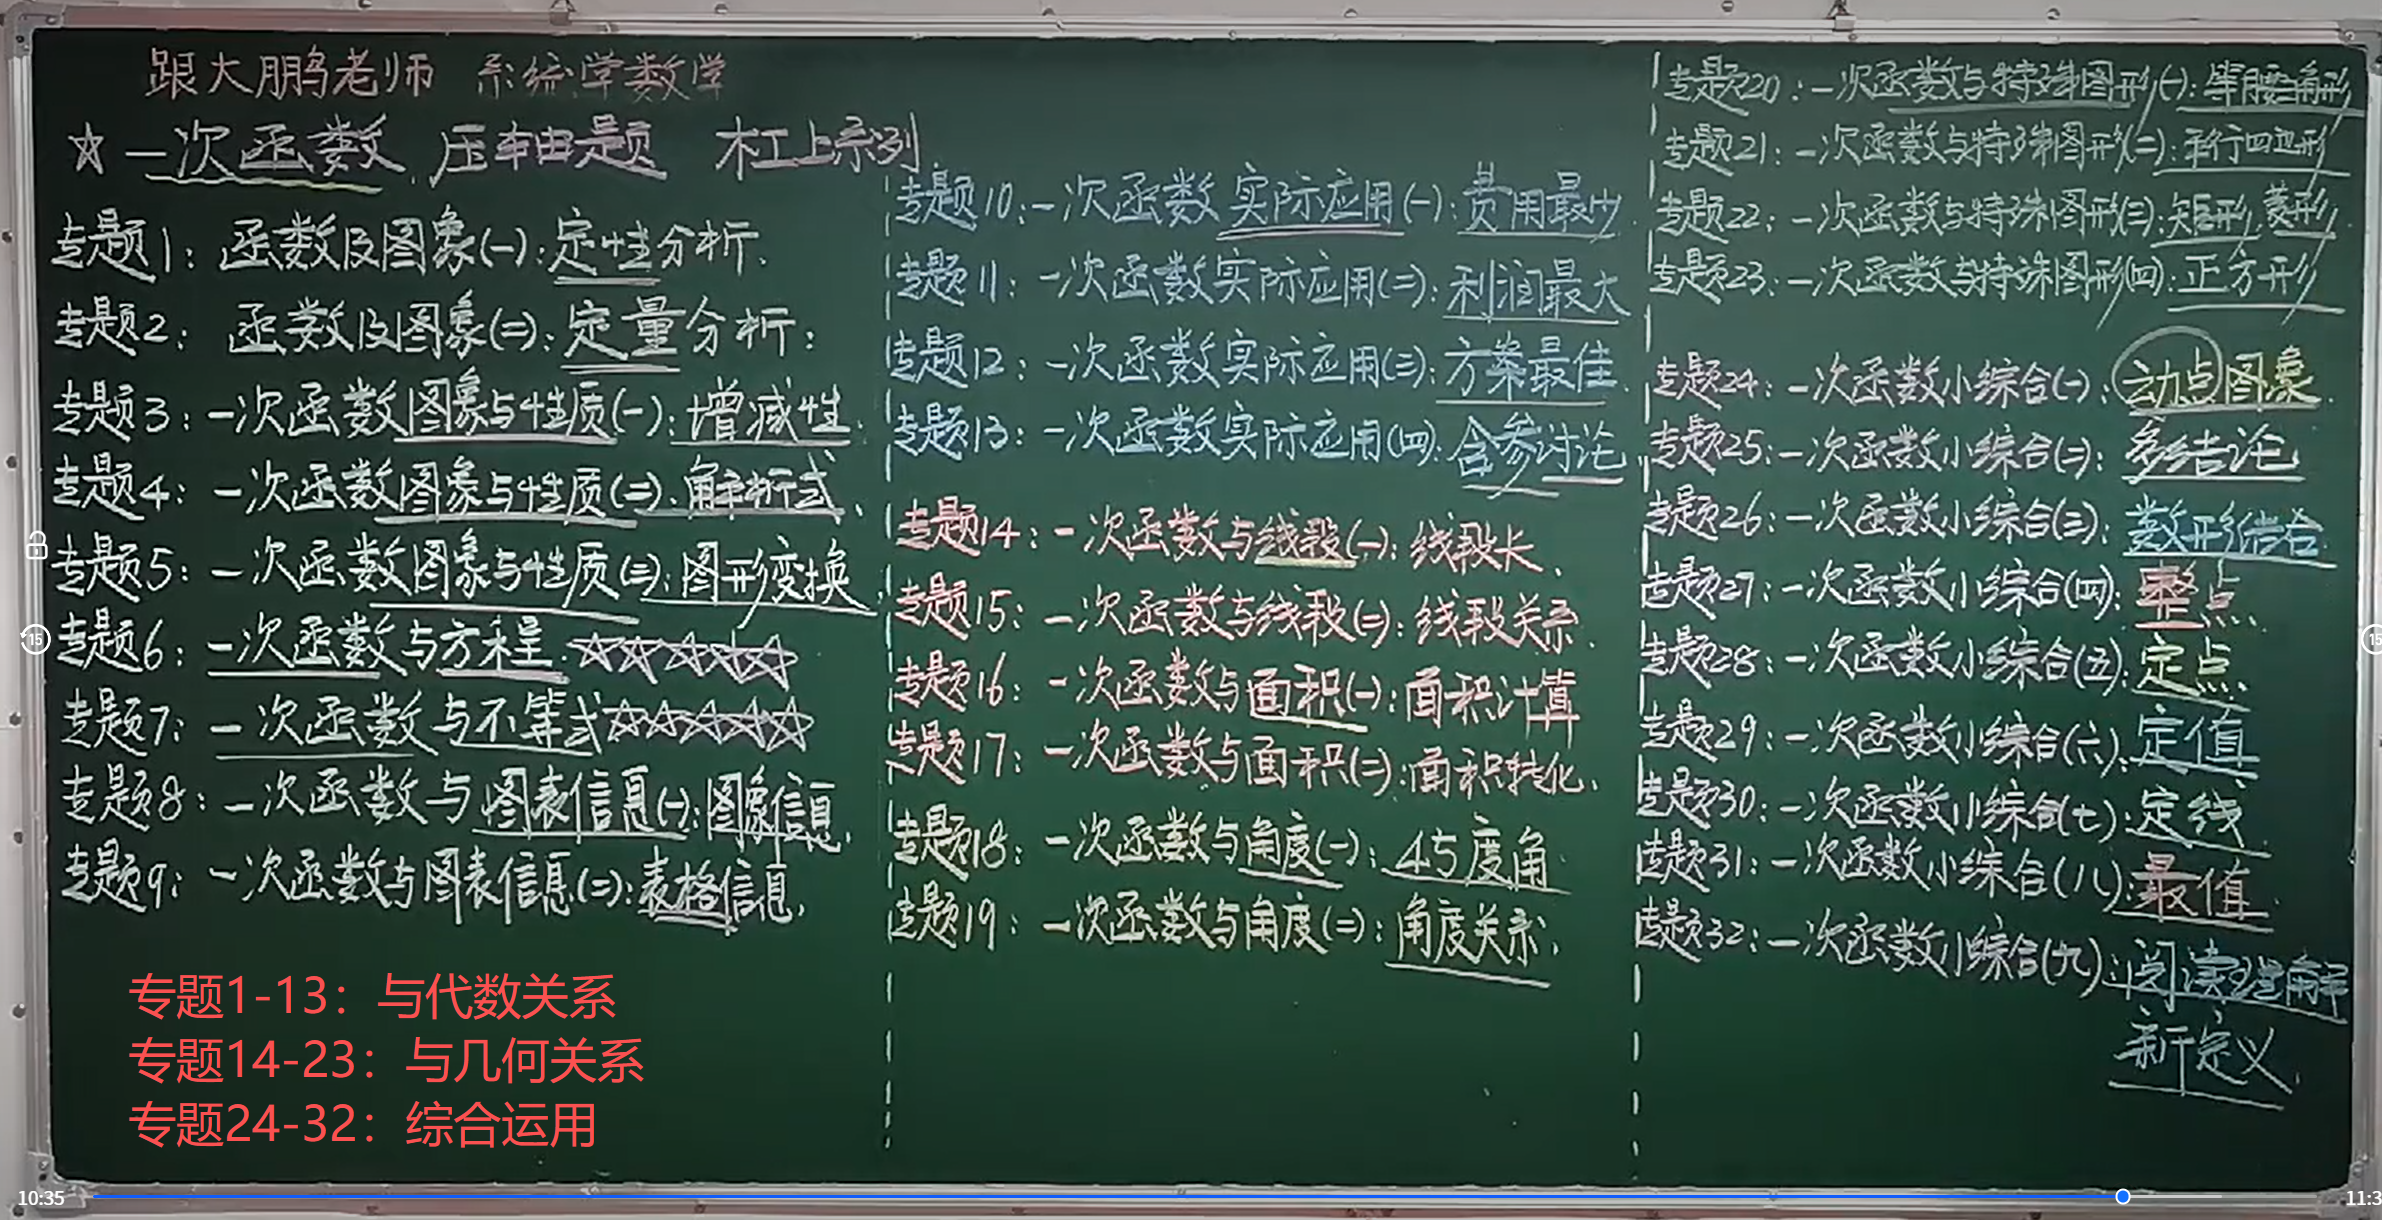 跟大鹏老师 系统学数学
☆一次函数 压轴题 杠上系列
专题1：函数及图象(一)：定性分析.
专题2：函数及图象(二)：定量分析：
专题3：一次函数图象与性质(一)：增减性.
专题4：一次函数图象与性质(二)：解析式.
专题5：一次函数图象与性质(三)：图形变换
专题6：一次函数与方程.☆☆☆☆☆
专题7：一次函数与不等式☆☆☆☆☆
专题8：一次函数与图表信息(一)：图象信息.
专题9：一次函数与图表信息(二)：表格信息.
专题1-13：与代数关系
专题14-23：与几何关系
专题24-32：综合运用
专题10：一次函数实际应用(一)：费用最少
专题11：一次函数实际应用(二)：利润最大
专题12：一次函数实际应用(三)：方案最佳.
专题13：一次函数实际应用(四)：含参讨论.
专题14：一次函数与线段(一)：线段长.
专题15：一次函数与线段(二)：线段关系.
专题16：一次函数与面积(一)：面积计算
专题17：一次函数与面积(二)：面积转化.
专题18：一次函数与角度(一)：45度角.
专题19：一次函数与角度(二)：角度关系.
专题20：一次函数与特殊图形(一)：等腰三角形
专题21：一次函数与特殊图形(二)：平行四边形
专题22：一次函数与特殊图形(三)：矩形,菱形
专题23：一次函数与特殊图形(四)：正方形
专题24：一次函数小综合(一)：动点图象.
专题25：一次函数小综合(二)：多结论
专题26：一次函数小综合(三)：数形结合
专题27：一次函数小综合(四)：整点.
专题28：一次函数小综合(五)：定点.
专题29：一次函数小综合(六)：定值
专题30：一次函数小综合(七)：定线
专题31：一次函数小综合(八)：最值.
专题32：一次函数小综合(九)：阅读理解
新定义.
15
15
10:35
11:3